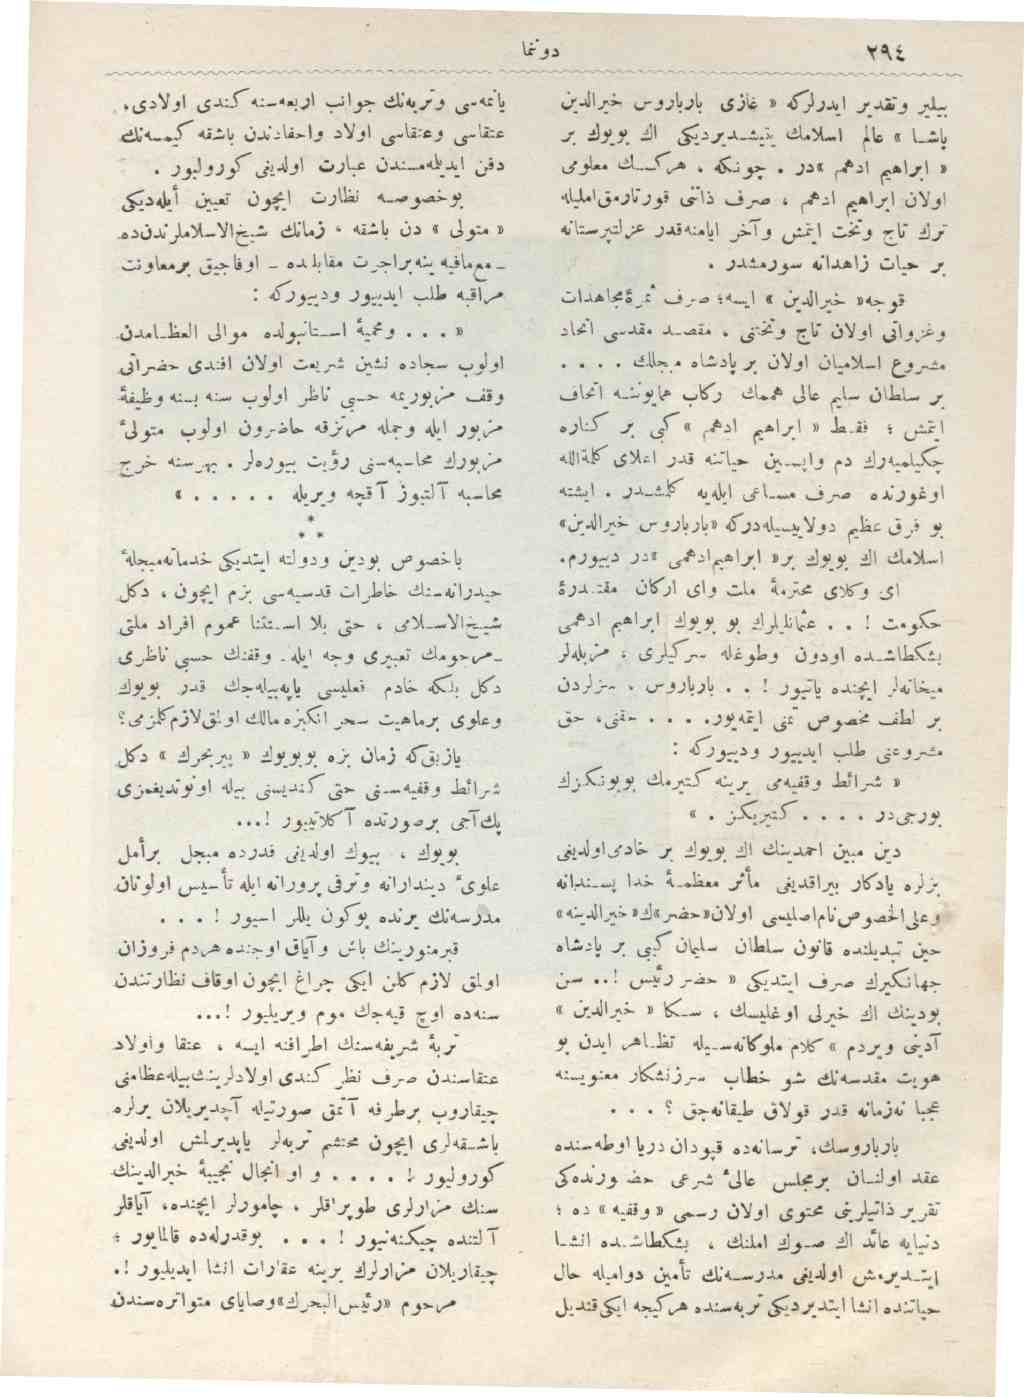 ٢٩٤
دوننما
بيلير وتقدير ايدرلركه « غازى بارباروس خيرالدين
پاشا » عالم اسلامك يتيشديرديكى اك بويوك بر
« ابراهيم ادهم »در . چونكه ، هركسك معلومى
اولان ابراهيم ادهم ، صرف ذاتنى قورتارمق امليله
ترك تاج وتخت ايتمش وآخر ايامنه‌قدر عزلتپرستانه
بر حيات زاهدانه سورمشدر .
قوجه« خيرالدين » ايسه؛ صرف ثمرۀ مجاهدات
وغزواتى اولان تاج وتختنى . مقصد مقدسى اتحاد
مشروع اسلاميان اولان بر پادشاه مبجلك . . . .
بر سلطان سليم عالى هممك ركاب همايوننه اتحاف
ايتمش ؛ فقط « ابراهيم ادهم » كبى بر كناره
چكيلميه‌رك دم واپسين حياتنه قدر اعلاى كلمةالله
اوغورنده صرف مساعى ايله‌يه كلمشدر . ايشته
بو فرق عظيم دولاييسيله‌دركه «بارباروس خيرالدين»
اسلامك اك بويوك بر« ابراهيم‌ادهمى »در دييورم.
اى وكلاى محترمۀ ملت واى اركان مقتدرۀ
حكومت ! . . عثمانليلرك بو بويوك ابراهيم ادهمى
بشكطاشده اودون وطوغله سركيلرى ، مزبله‌لر
ميخانه‌لر ايچنده ياتيور ! . . بارباروس ، سزلردن
بر لطف مخصوص تمنى ايتمه‌يور. . . . حقنى، حق
مشروعنى طلب ايدييور ودييوركه :
« شرائط وقفيه‌مى يرينه كتيرمك بويونكزك
بورجى‌در . . . . كتيريكز . »
دين مبين احمدينك اك بويوك بر خادمى‌اولديغى
بزلره يادكار بيراقديغى مآثر معظمۀ خدا پسندانه
وعلى الخصوص‌نام‌اصليسى اولان«حضر»ك« خيرالدينه»
حين تبديلنده قانون سلطان سليمان كبى بر پادشاه
جهانكيرك صرف ايتديكى « حضر رئيس !.. سن
بودينك اك خيرلى اوغليسك ، سكا « خيرالدين »
آدينى ويردم » كلام ملوكانه‌سيله تظاهر ايدن بو
هويت مقدسه‌نك شو خطاب سرزنشكار معنويسنه
عجبا نه‌زمانه قدر قولاق طيقانه‌جق ؟ . . .
بارباروسك، ترسانه‌ده قپودان دريا اوطه‌سنده
عقد اولنان برمجلس عالىٔ شرعى حضورنده‌كى
تقرير ذاتيلرينى محتوى اولان رسمى « وقفيه » ده ؛
دنيايه عائد اك صوك املنك ، بشكطاشده انشا
ايتديرمش اولديغى مدرسه‌نك تأمين دواميله حال
حياتنده انشا ايتديرديكى تربه‌سنده هركيجه ايكى قنديل
يانمه‌سى وتربه‌نك جوانب اربعه‌سنه كندى اولادى،
عتقاسى وعتقاسى اولاد واحفادندن باشقه كيمسه‌نك
دفن ايديلمه‌مسندن عبارت اولديغى كورولیور .
بوخصوصه نظارت ايچون تعيين أيله‌ديكى
« متولى » دن باشقه ، زمانك شيخ‌الاسلاملرندن‌ده
ـ مع‌مافيه ينه‌براجرت مقابلنده ـ اوفاجيق برمعاونت
مراقبه طلب ايدييور ودييوركه :
« . . . ومحميۀ استانبولده موالى العظامدن
اولوب سجاده نشين شريعت اولان افندى حضراتى
وقف مزبوريمه حسبى ناظر اولوب سنه بسنه وظيفۀ
مزبور ايله وجمله مرتزقه حاضرون اولوب متولىٔ
مزبورك محاسبه‌سنى رؤيت بيوره‌لر . بهرسنه خرج
محاسبه آلتيوز آقچه ويريله . . . . . »
*
* *
باخصوص بودين ودولته ايتديكى خدمات‌مبجلۀ
حيدرانه‌سنك خاطرات قدسيه‌سى بزم ايچون ، دكل
شيخ‌الاسلامى ، حتى بلا استثنا عموم افراد ملتى
ـ مرحومك تعبيرى وجه ايله ـ وقفنك حسبى ناظرى
دكل بلكه خادم فعليسى ياپه‌بيله‌جك قدر بويوك
وعلوى برماهيت سحر انكيزه مالك اولمق‌لازم‌كلمزمى؟
يازيق‌كه زمان بزه بوبويوك « پيربحرك » دكل
شرائط وقفيه‌سنى حتى كنديسنى بيله اونوتديغمزى
پك‌آجى برصورتده آكلاتييور !...
بويوك ، بيوك اولديغى قدرده مبجل برأمل
علوىٔ ديندارانه وترقى پرورانه ايله تأسيس اولونان
مدرسه‌نك يرنده بوكون يللر اسيور ! . . .
قبرمنورينك باش وآياق اوجنده هردم فروزان
اولمق لازم كلن ايكى چراغ ايچون اوقاف نظارتندن
سنه‌ده اوچ قيه‌جك موم ويريليور !...
تربۀ شريفه‌سنك اطرافنه ايسه ، عتقا واولاد
عتقاسندن صرف نظر كندى اولادلرينك‌بيله‌عظامنى
چيقاروب برطرفه آتمق صورتيله آچديريلان يرلره
باشقه‌لرى ايچون محتشم تربه‌لر ياپديرلمش اولديغى
كورولیور ! . . . . و او انجال نجيبۀ خيرالدينك
سنك مزارلرى طوپراقلر ، چامورلر ايچنده، آياقلر
آلتنده چيكنه‌نيور ! . . . بوقدرله‌ده قالمايور ؛
چيقاريلان مزارلرك يرينه عقارات انشا ايديليور !.
مرحوم «رئيس‌البحرك»وصاياى متواتره‌سندن